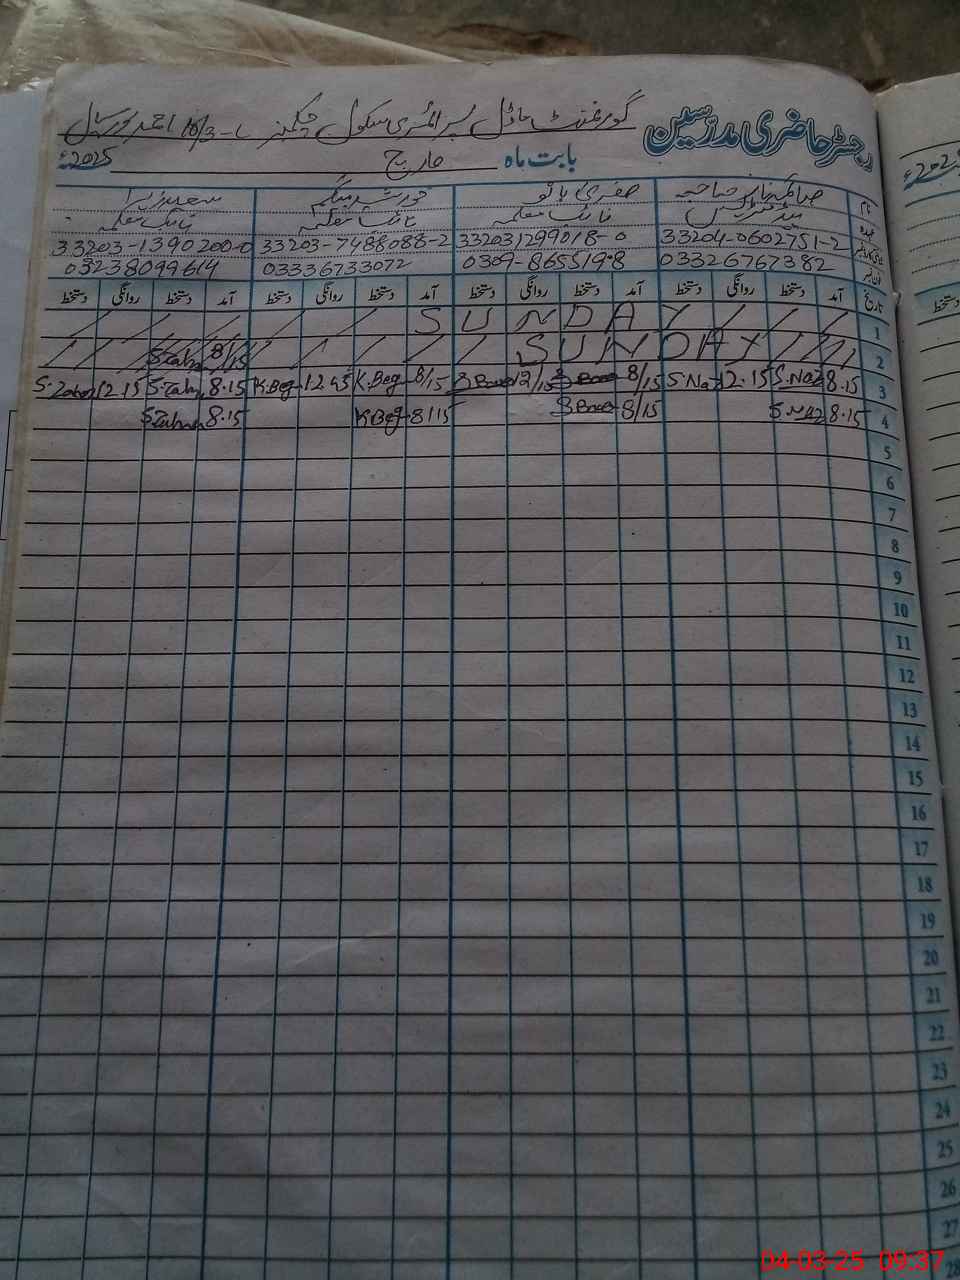 رجسٹر حاضری مدرسین گورنمنٹ ماڈل پرائمری سکول چکنمبر 16/3-L احمد پور سیال
بابت ماہ مارچ 2025ء
نام صائمہ ناز صاحبہ صغریٰ بانو خورشید بیگم سعدیہ زہرا
عہدہ ہیڈ مسٹریس نائب معلمہ نائب معلمہ نائب معلمہ
33204-0602751-2 332031299018-0 33203-7488088-2 33203-1390200-0
فون نمبر 03326767382 0309-8655198 03336733072 03238099614
تاریخ آمد دستخط روانگی دستخط آمد دستخط روانگی دستخط آمد دستخط روانگی دستخط آمد دستخط روانگی دستخط
1 SUNDAY
2 SUNDAY S.Zahra 8/15
3 8.15 S.Naz 12.15 S.Naz 8/15 S Bano 12/15 S Bano 8/15 K.Beg 12.45 K.Beg 8.15 S.Zahra 12.15 S.Zahra
4 8.15 S.Naz 8/15 S Bano 8/15 K Beg 8.15 S.Zahra
5
6
7
8
9
10
11
12
13
14
15
16
17
18
19
20
21
22
23
24
25
26
27
28
دستخط
04-03-25 09:37